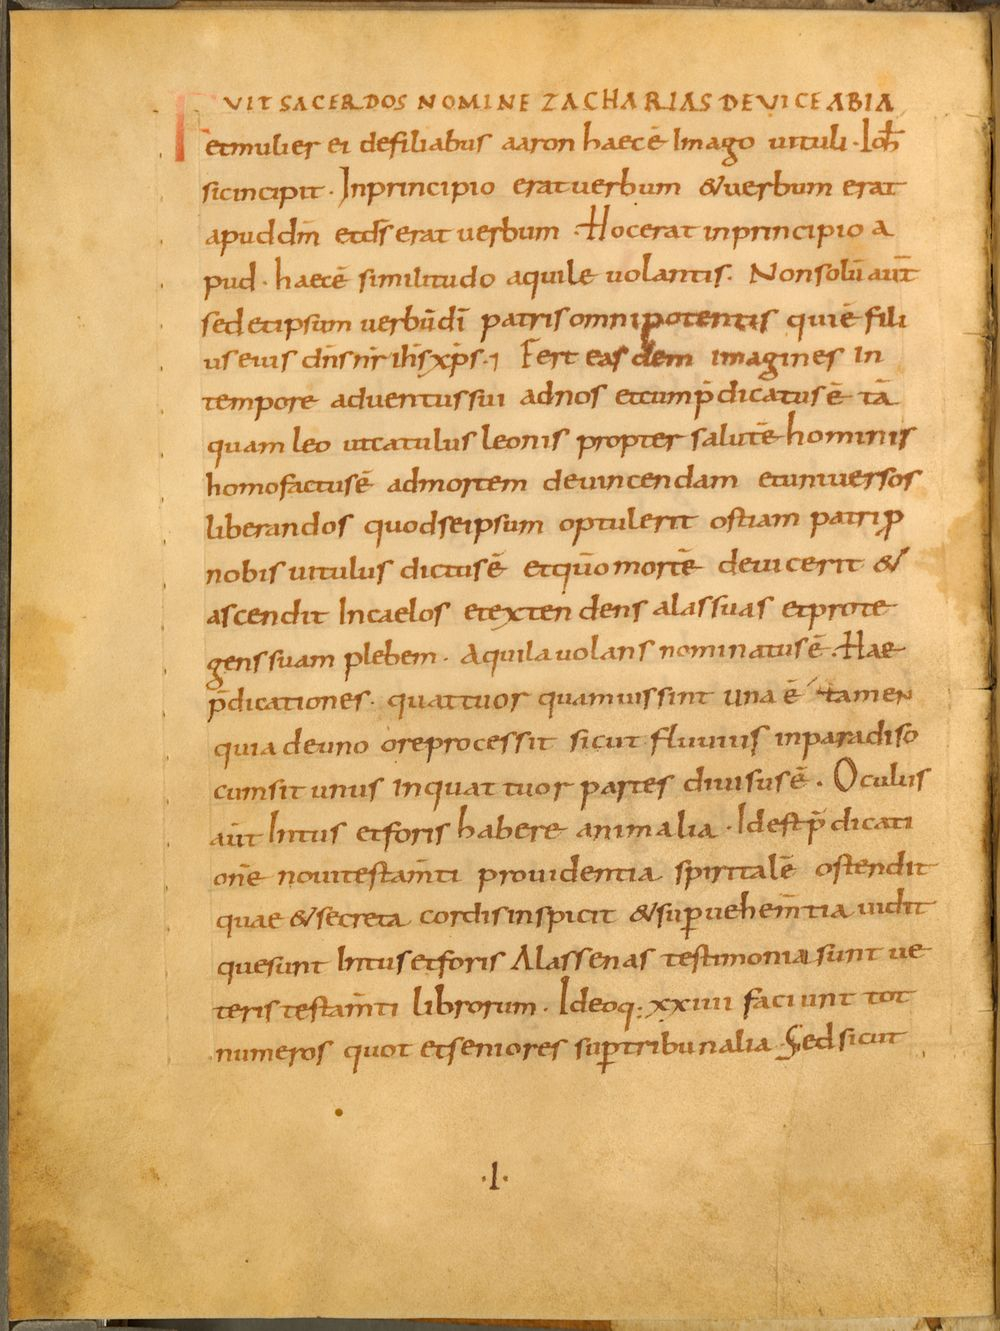 FVIT SACERDOS NOMINE ZACHARIAS DE VICE ABIA
et mulier ei de filiabus aaron haec ē Imago uituli · Ioħ
sic incipit · In principio erat uerbum & uerbum erat
apud dm̄ et ds̄ erat uerbum · Hoc erat in principio a
pud · haec ē similitudo aquile uolantis · Non solū aūt
sed et ipsum uerbū dī patris omnipotentis qui ē fili
us eius dn̄s nr̄ ih̄s xp̄s · Fert easdem imagines in
tempore aduentus sui ad nos et cum p̄dicatus ē tā
quam leo ut catulus leonis propter salutē hominis
homo factus ē ad mortem deuincendam et uniuersos
liberandos quod se ipsum optulerit ostiam patri ꝓ
nobis uitulus dictus ē et quō mortē deuicerit &
ascendit In caelos et extendens alas suas et prote
gens suam plebem · Aquila uolans nominatus ē · Hae
p̄dicationes · quattuor quamuis sint una ē tamen
quia de uno ore processit sicut fluuius in paradiso
cum sit unus in quattuor partes diuisus ē · Oculus
aūt Intus et foris habere animalia · Id est p̄dicati
onē noui testam̄ti prouidentia spiritalē ostendit
quae & secreta cordis inspicit & suꝑuehem̄tia uidit
que sunt Intus et foris Alas senas testimonia sunt ue
teris testam̄ti librorum · Ideoq; xxiiii faciunt tot
numeros quot et seniores suꝑ tribunalia · Sed sicut
· I ·